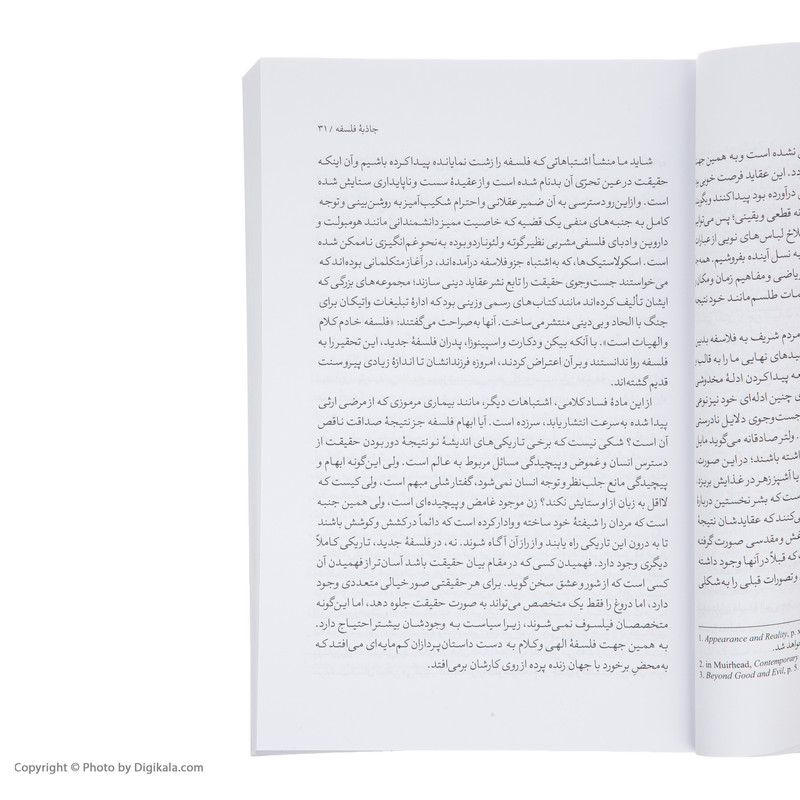 جاذبهٔ فلسفه / ۳۱
شاید ما منشأ اشتباهاتی که فلسفه را زشت نمایانده پیدا کرده باشیم و آن اینکه
حقیقت در عین تحرّی آن بدنام شده است و از عقیدهٔ سست و ناپایداری ستایش شده
است. و از این رو دسترسی به آن ضمیر عقلانی و احترام شکیب‌آمیز به روشن‌بینی و توجه
کامل به جنبه‌های منفی یک قضیه که خاصیت ممیز دانشمندانی مانند هومبولت و
داروین و ادبای فلسفی‌مشربی نظیر گوته و لئوناردو بوده به نحو غم‌انگیزی ناممکن شده
است. اسکولاستیک‌ها، که به‌اشتباه جزو فلاسفه درآمده‌اند، در آغاز متکلمانی بوده‌اند که
می‌خواستند جست‌وجوی حقیقت را تابع نشر عقاید دینی سازند؛ مجموعه‌های بزرگی که
ایشان تألیف کرده‌اند مانند کتاب‌های رسمی وزینی بود که ادارهٔ تبلیغات واتیکان برای
جنگ با الحاد و بی‌دینی منتشر می‌ساخت. آنها به‌صراحت می‌گفتند: «فلسفه خادم کلام
و الهیات است». با آنکه بیکن و دکارت و اسپینوزا، پدران فلسفهٔ جدید، این تحقیر را به
فلسفه روا ندانستند و بر آن اعتراض کردند، امروزه فرزندانشان تا اندازهٔ زیادی پیرو سنت
قدیم گشته‌اند.
از این مادهٔ فساد کلامی، اشتباهات دیگر، مانند بیماری مرموزی که از مرضی ارثی
پیدا شده به‌سرعت انتشار یابد، سرزده است. آیا ابهام فلسفه جز نتیجهٔ صداقت ناقص
آن است؟ شکی نیست که برخی تاریکی‌های اندیشهٔ نو نتیجهٔ دور بودن حقیقت از
دسترس انسان و غموض و پیچیدگی مسائل مربوط به عالم است. ولی این‌گونه ابهام و
پیچیدگی مانع جلب نظر و توجه انسان نمی‌شود، گفتار شلی مبهم است، ولی کیست که
لااقل به زبان از او ستایش نکند؟ زن موجود غامض و پیچیده‌ای است، ولی همین جنبه
است که مردان را شیفتهٔ خود ساخته و وادار کرده است که دائماً در کشش و کوشش باشند
تا به درون این تاریکی راه یابند و از راز آن آگاه شوند. نه، در فلسفهٔ جدید، تاریکی کاملاً
دیگری وجود دارد. فهمیدن کسی که در مقام بیان حقیقت باشد آسان‌تر از فهمیدن آن
کسی است که از شور و عشق سخن گوید. برای هر حقیقتی صور خیالی متعددی وجود
دارد، اما دروغ را فقط یک متخصص می‌تواند به صورت حقیقت جلوه دهد، اما این‌گونه
متخصصان فیلسوف نمی‌شوند، زیرا سیاست به وجودشان بیشتر احتیاج دارد.
به همین جهت فلسفهٔ الهی و کلام به دست داستان‌پردازان کم‌مایه‌ای می‌افتد که
به‌محض برخورد با جهان زنده پرده از روی کارشان برمی‌افتد.
نشده است و به همین جهت
این عقاید فرصت خوبی
درآورده بود پیدا کنند و بگویند
قطعی و یقینی؛ پس می‌توانیم
لباس‌های نویی از عبارات
به نسل آینده بفروشیم. همه
ریاضی و مفاهیم زمان و مکان
طلسم مانند خود نتیجهٔ
مردم شریف به فلاسفه بدبین
نهایی ما را به قالب
پیدا کردن ادلهٔ مخدوش
چنین ادله‌ای خود نیز نوعی
جست‌وجوی دلایل نادرستی
ولتر صادقانه می‌گوید مایل
داشته باشند؛ در این صورت
آشپز زهر در غذایش بریزد
که بشر نخستین دربارهٔ
می‌کنند که عقایدشان نتیجهٔ
و مقدسی صورت گرفته
که قبلاً در آنها وجود داشته
و تصورات قبلی را به شکلی
1. Appearance and Reality, p.
خواهد شد.
2. in Muirhead, Contemporary
3. Beyond Good and Evil, p. 5.
Copyright © Photo by Digikala.com